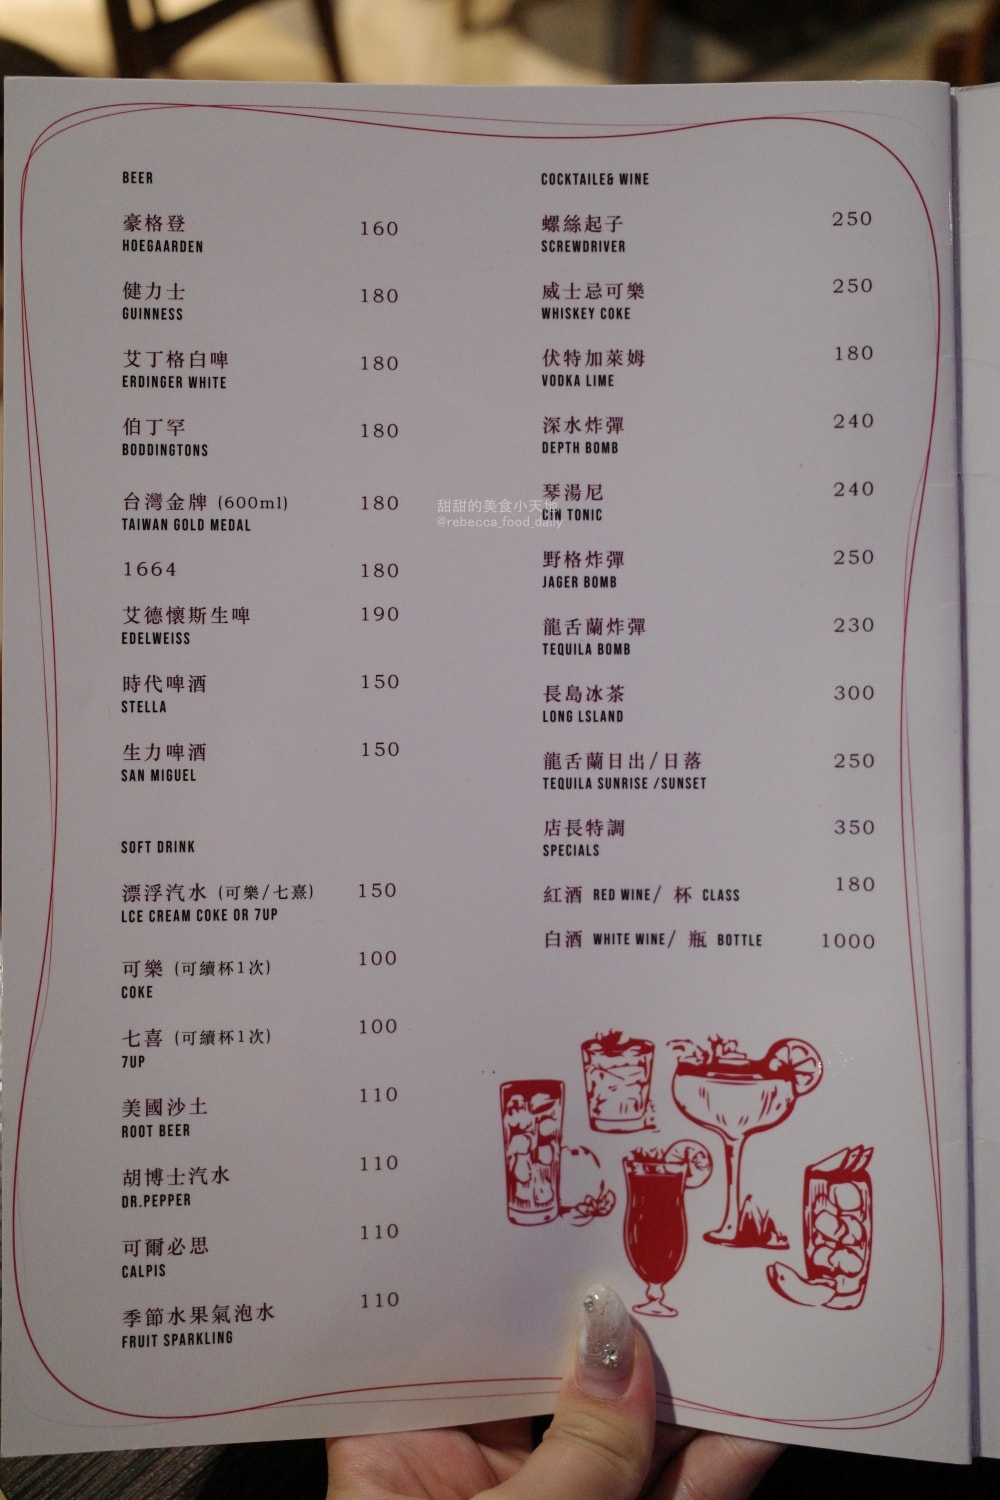 BEER
豪格登 160
HOEGAARDEN
健力士 180
GUINNESS
艾丁格白啤 180
ERDINGER WHITE
伯丁罕 180
BODDINGTONS
台灣金牌 (600ml) 180
TAIWAN GOLD MEDAL
1664 180
艾德懷斯生啤 190
EDELWEISS
時代啤酒 150
STELLA
生力啤酒 150
SAN MIGUEL
SOFT DRINK
漂浮汽水 (可樂/七熹) 150
LCE CREAM COKE OR 7UP
可樂 (可續杯1次) 100
COKE
七喜 (可續杯1次) 100
7UP
美國沙士 110
ROOT BEER
胡博士汽水 110
DR.PEPPER
可爾必思 110
CALPIS
季節水果氣泡水 110
FRUIT SPARKLING
COCKTAILE& WINE
螺絲起子 250
SCREWDRIVER
威士忌可樂 250
WHISKEY COKE
伏特加萊姆 180
VODKA LIME
深水炸彈 240
DEPTH BOMB
琴湯尼 240
CIN TONIC
野格炸彈 250
JAGER BOMB
龍舌蘭炸彈 230
TEQUILA BOMB
長島冰茶 300
LONG LSLAND
龍舌蘭日出/日落 250
TEQUILA SUNRISE /SUNSET
店長特調 350
SPECIALS
紅酒 RED WINE/ 杯 CLASS 180
白酒 WHITE WINE/ 瓶 BOTTLE 1000
甜甜的美食小天地
@rebecca_food_daily